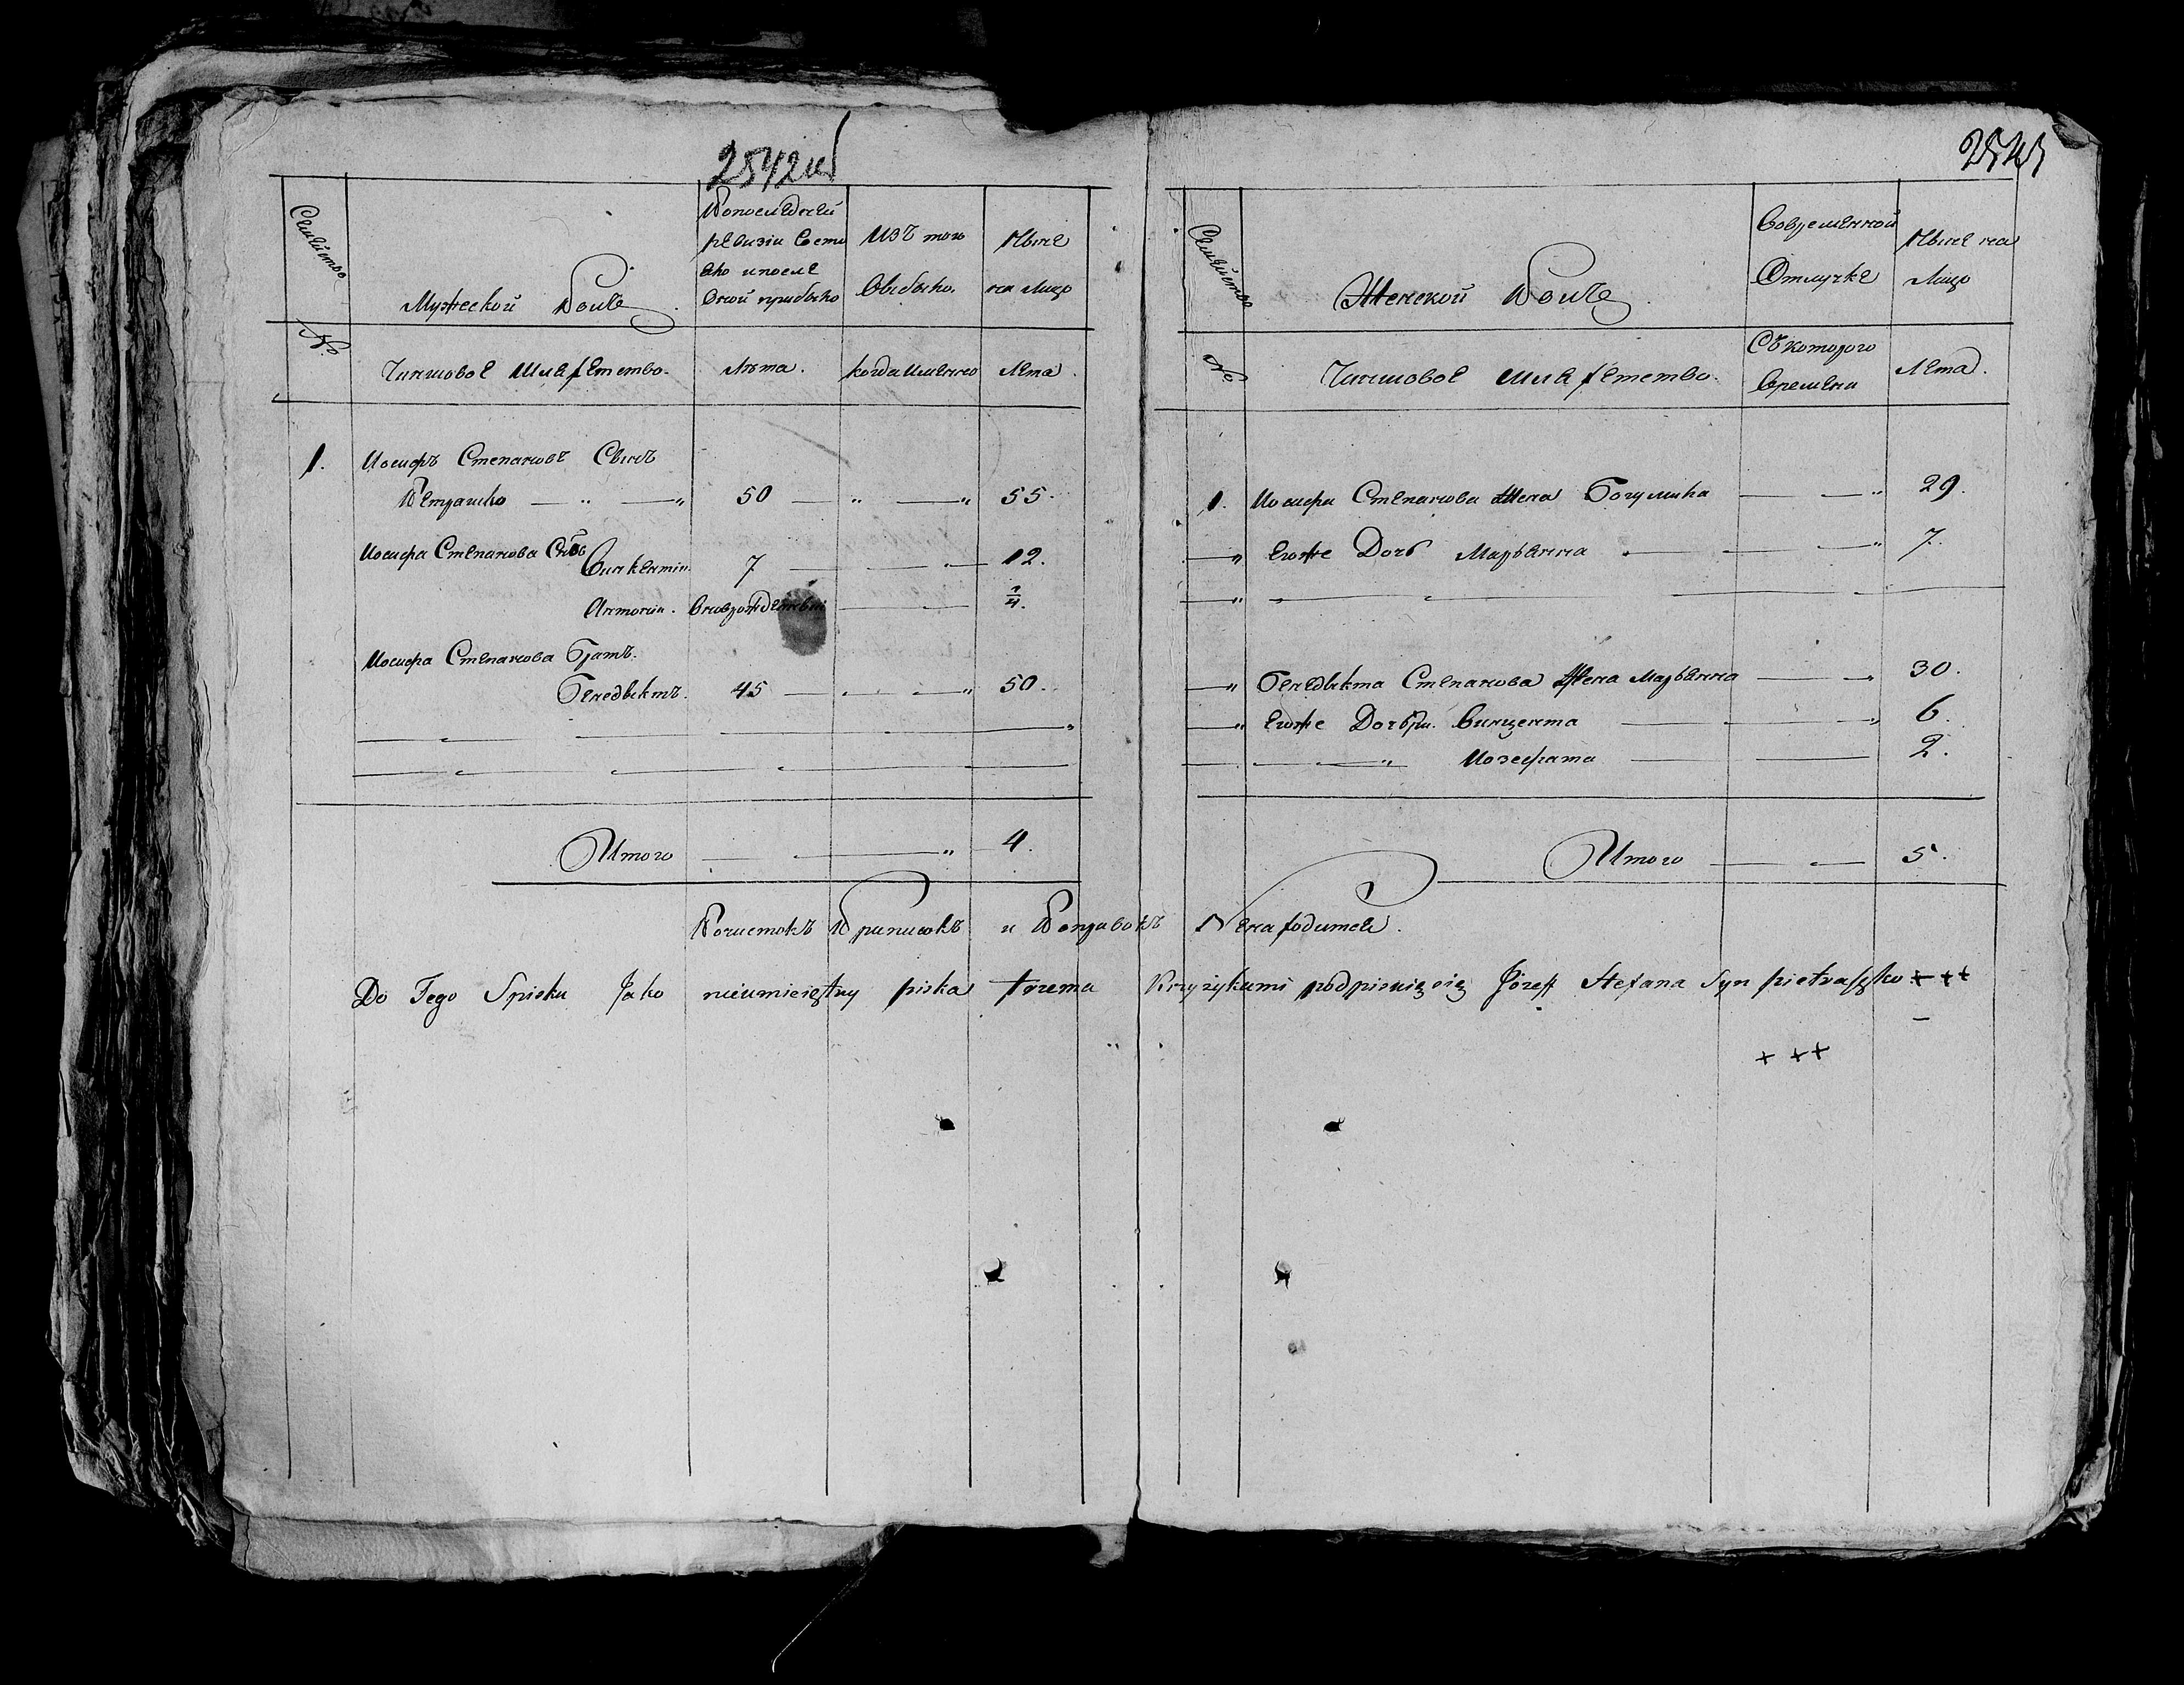 2542 об
2543
Семейство
Мужеской Полъ
Попоследней
ревизiи Состо
яло ипосле
Оной прибыло
Изъ того
Выбыло.
Ныне
на лицо
№
Чиншовое Шляхетство.
Лѣта.
когда Именно
Лета.
1. Иосифъ Степановъ Сынъ
Петрашко 50 55.
Иосифа Степанова Сынъ
Винкентiи. 7 12.
Антонiи. Вновьрожденный 1/4.
Иосифа Степанова Братъ.
Бенедыктъ. 45 50.
Итого 4.
Семейство
Женской Полъ
Вовременной
Отлучке
Ныне на
Лицо
№
Чиншовое Шляхетство.
Съ которого
Времени
Лета.
1. Иосифа Степанова Жена Богумила 29.
Егоже Дочь Марьянна 7.
Бенедыкта Степанова Жена Марьянна 30.
Егоже Дочьри. Винцента 6.
Иозефата 2.
Итого 5.
Почистокъ Приписокъ и Поправокъ Ненаходитсе.
Do Tego Spisku Jako nieumieiętny piska trzema Krzyżykami podpisuię się Józeff Stefana Syn pietraszko + + +
+ + +